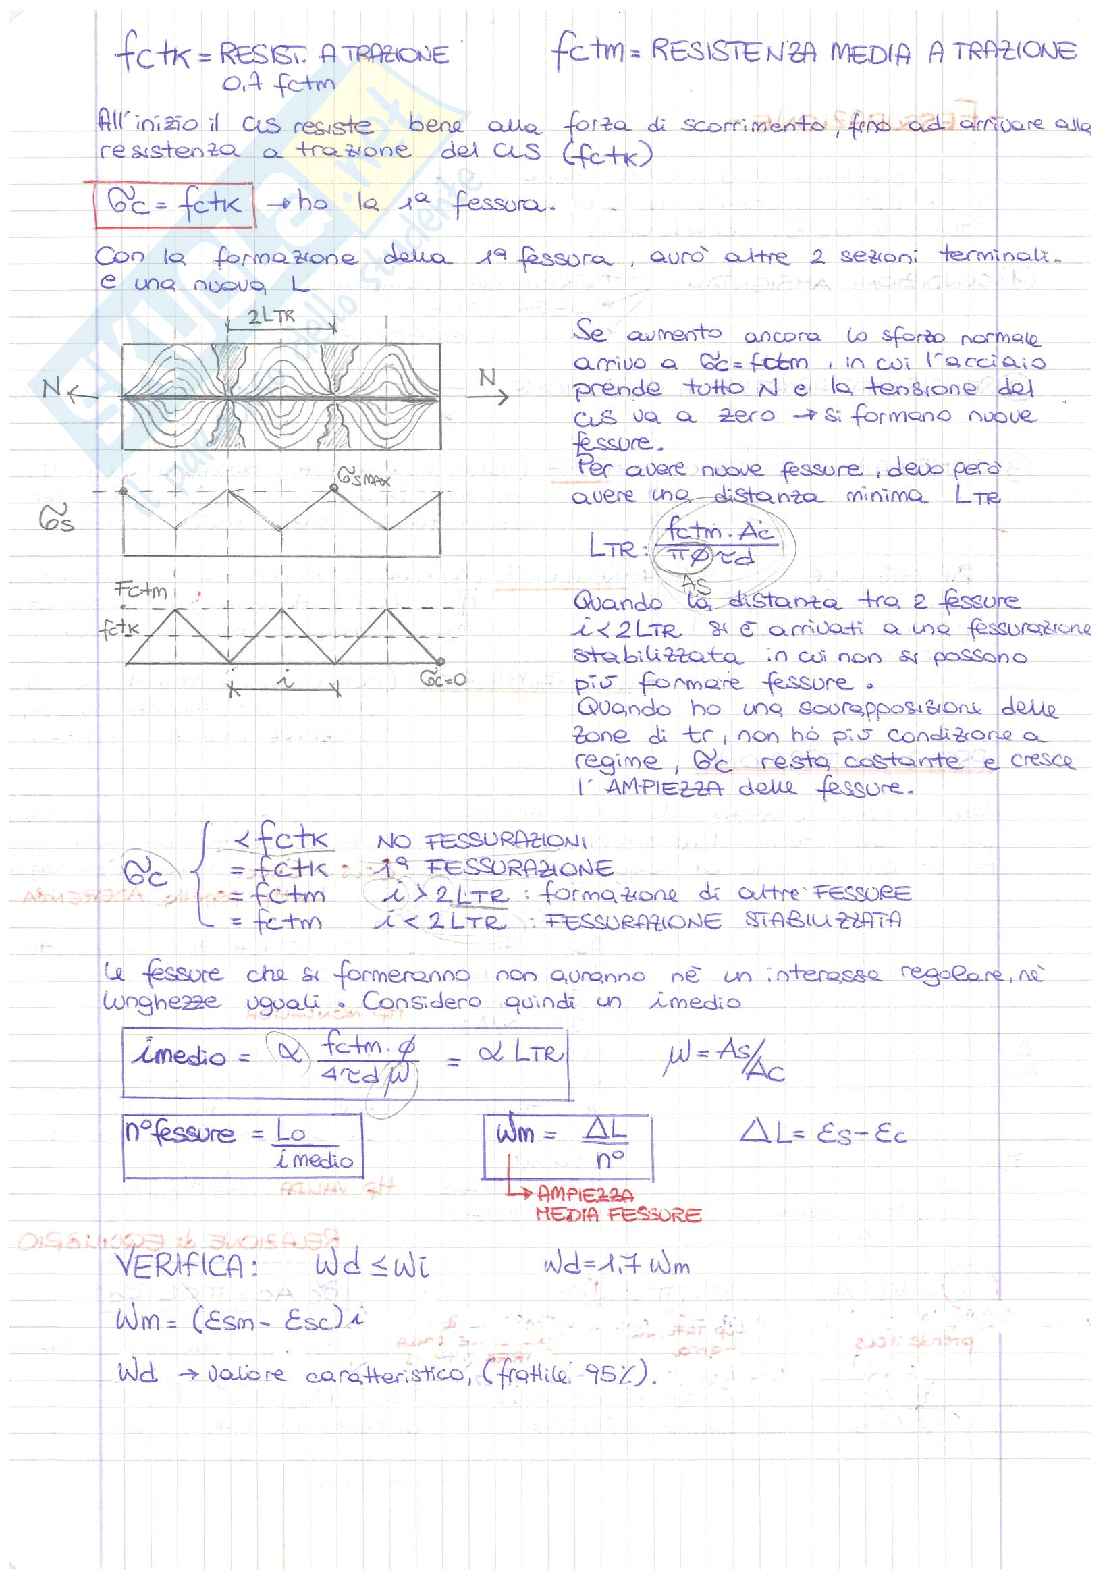 fctk = RESIST. A TRAZIONE
0,7 fctm
fctm = RESISTENZA MEDIA A TRAZIONE
All'inizio il cls resiste bene alla forza di scorrimento, fino ad arrivare alla
resistenza a trazione del cls (fctk)
σc = fctk → ho la 1ª fessura.
Con la formazione della 1ª fessura, avrò altre 2 sezioni terminali.
e una nuova L
2LTR
N
N
σs
σsMAX
Fctm
fctk
i
σc=0
Se aumento ancora lo sforzo normale
arrivo a σc = fctm, in cui l'acciaio
prende tutto N e la tensione del
cls va a zero → si formano nuove
fessure.
Per avere nuove fessure, devo però
avere una distanza minima LTR
LTR: fctm · Ac / πφτd
AS
Quando la distanza tra 2 fessure
i < 2LTR si è arrivati a una fessurazione
stabilizzata in cui non si possono
più formare fessure.
Quando ho una sovrapposizioni delle
zone di tr, non ho più condizione a
regime, σc resta costante e cresce
l'AMPIEZZA delle fessure.
σc { < fctk NO FESSURAZIONI
= fctk : 1ª FESSURAZIONE
= fctm i > 2LTR : formazione di altre FESSURE
= fctm i < 2LTR : FESSURAZIONE STABILIZZATA
Le fessure che si formeranno non avranno nè un interasse regolare, nè
lunghezze uguali. Considero quindi un imedio
imedio = α fctm · φ / 4τdμ = α LTR
μ = As/Ac
n° fessure = Lo / imedio
wm = ΔL / n°
ΔL = εs - εc
AMPIEZZA
MEDIA FESSURE
VERIFICA: Wd ≤ Wi
Wd = 1,7 Wm
Wm = (εsm - εsc) i
Wd → valore caratteristico, (frattile 95%).